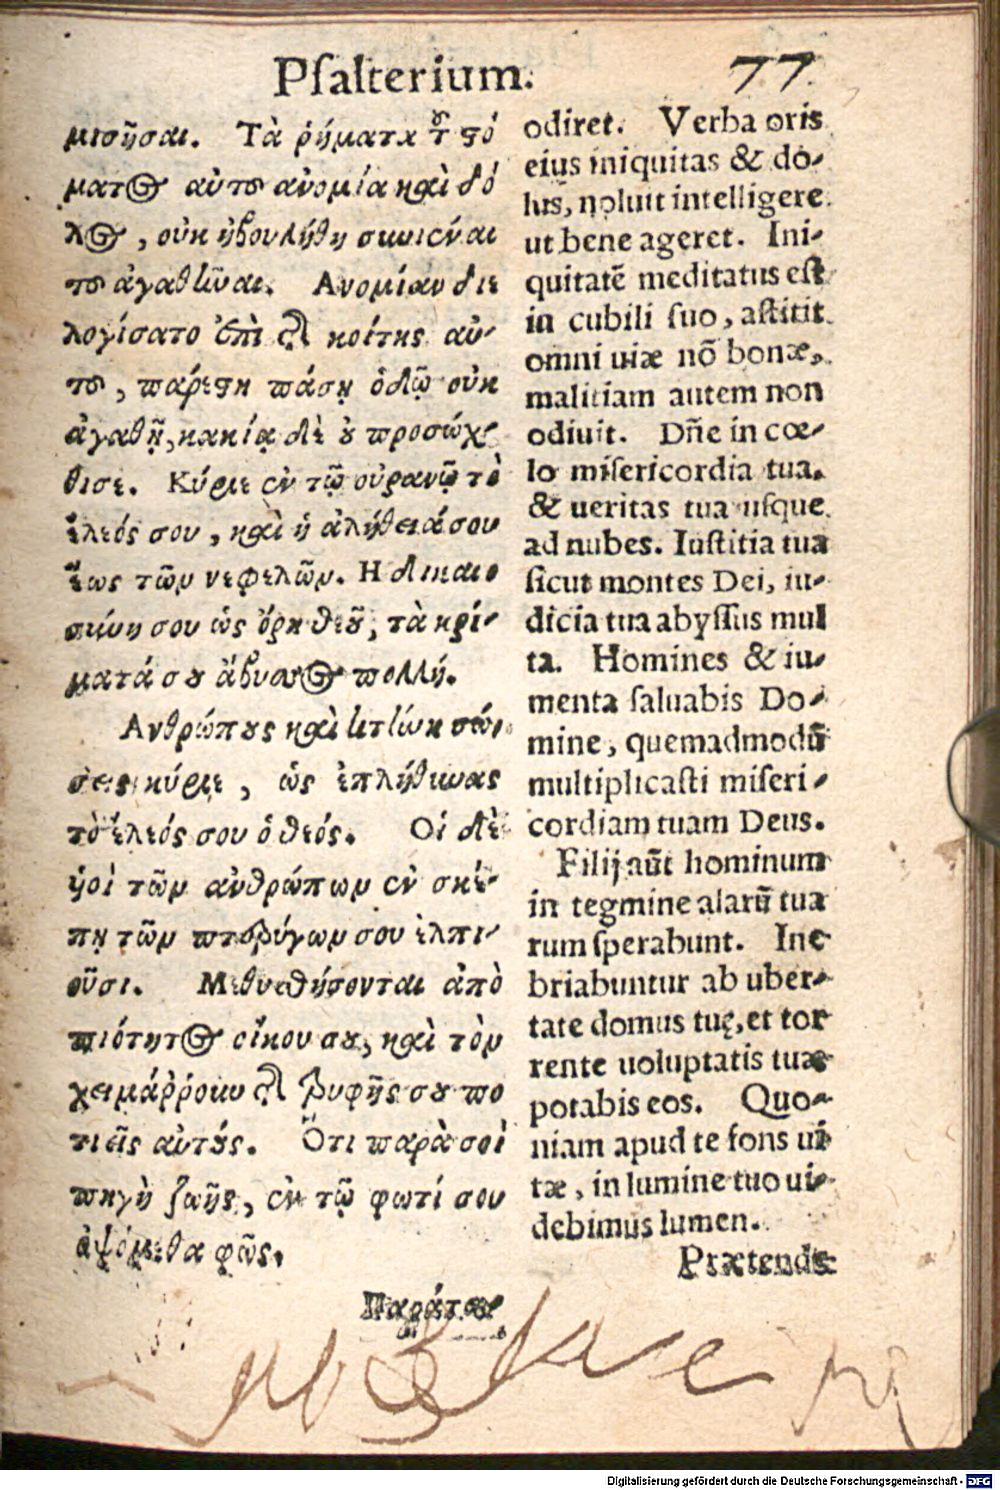 Psalterium. 77
μισῆσαι. Τὰ ῥήματα τοῦ στό
ματος αὐτοῦ ἀνομία καὶ δό
λος, οὐκ ἠβουλήθη συνιέναι
τοῦ ἀγαθῦναι. Ἀνομίαν διε
λογίσατο ἐπὶ τῆς κοίτης αὐ-
τοῦ, παρέστη πάσῃ ὁδῷ οὐκ
ἀγαθῇ, κακίᾳ δὲ οὐ προσώχ-
θισε. Κύριε ἐν τῷ οὐρανῷ τὸ
ἔλεός σου, καὶ ἡ ἀλήθειά σου
ἕως τῶν νεφελῶν. Η δικαιο
σύνη σου ὡς ὄρη θεοῦ, τὰ κρί-
ματά σου ἄβυσσος πολλή.
Ανθρώπους καὶ κτήνη σώ-
σεις κύριε, ὡς ἐπλήθυνας
τὸ ἔλεός σου ὁ θεός. Οἱ δὲ
ὑοὶ τῶν ἀνθρώπων ἐν σκέ-
πῃ τῶν πτερύγων σου ἐλπι-
οῦσι. Μεθυσθήσονται ἀπὸ
πιότητος οἴκου σου, καὶ τὸν
χειμάῤῥουν τῆς τρυφῆς σου πο
τιεῖς αὐτούς. Ὅτι παρὰ σοὶ
πηγὴ ζωῆς, ἐν τῷ φωτί σου
ὀψόμεθα φῶς.
Παράτει
odiret. Verba oris
eius iniquitas & do-
lus, noluit intelligere
ut bene ageret. Ini-
quitatē meditatus est
in cubili suo, astitit
omni uiæ nō bonæ,
malitiam autem non
odiuit. Dñe in cœ-
lo misericordia tua.
& ueritas tua usque
ad nubes. Iustitia tua
sicut montes Dei, iu-
dicia tua abyssus mul
ta. Homines & iu-
menta saluabis Do-
mine, quemadmodū
multiplicasti miseri-
cordiam tuam Deus.
Filij aūt hominum
in tegmine alarū tua
rum sperabunt. Ine
briabuntur ab uber-
tate domus tuę, et tor
rente uoluptatis tuæ
potabis eos. Quo-
niam apud te fons ui
tæ, in lumine tuo ui-
debimus lumen.
Prætende
Digitalisierung gefördert durch die Deutsche Forschungsgemeinschaft - DFG